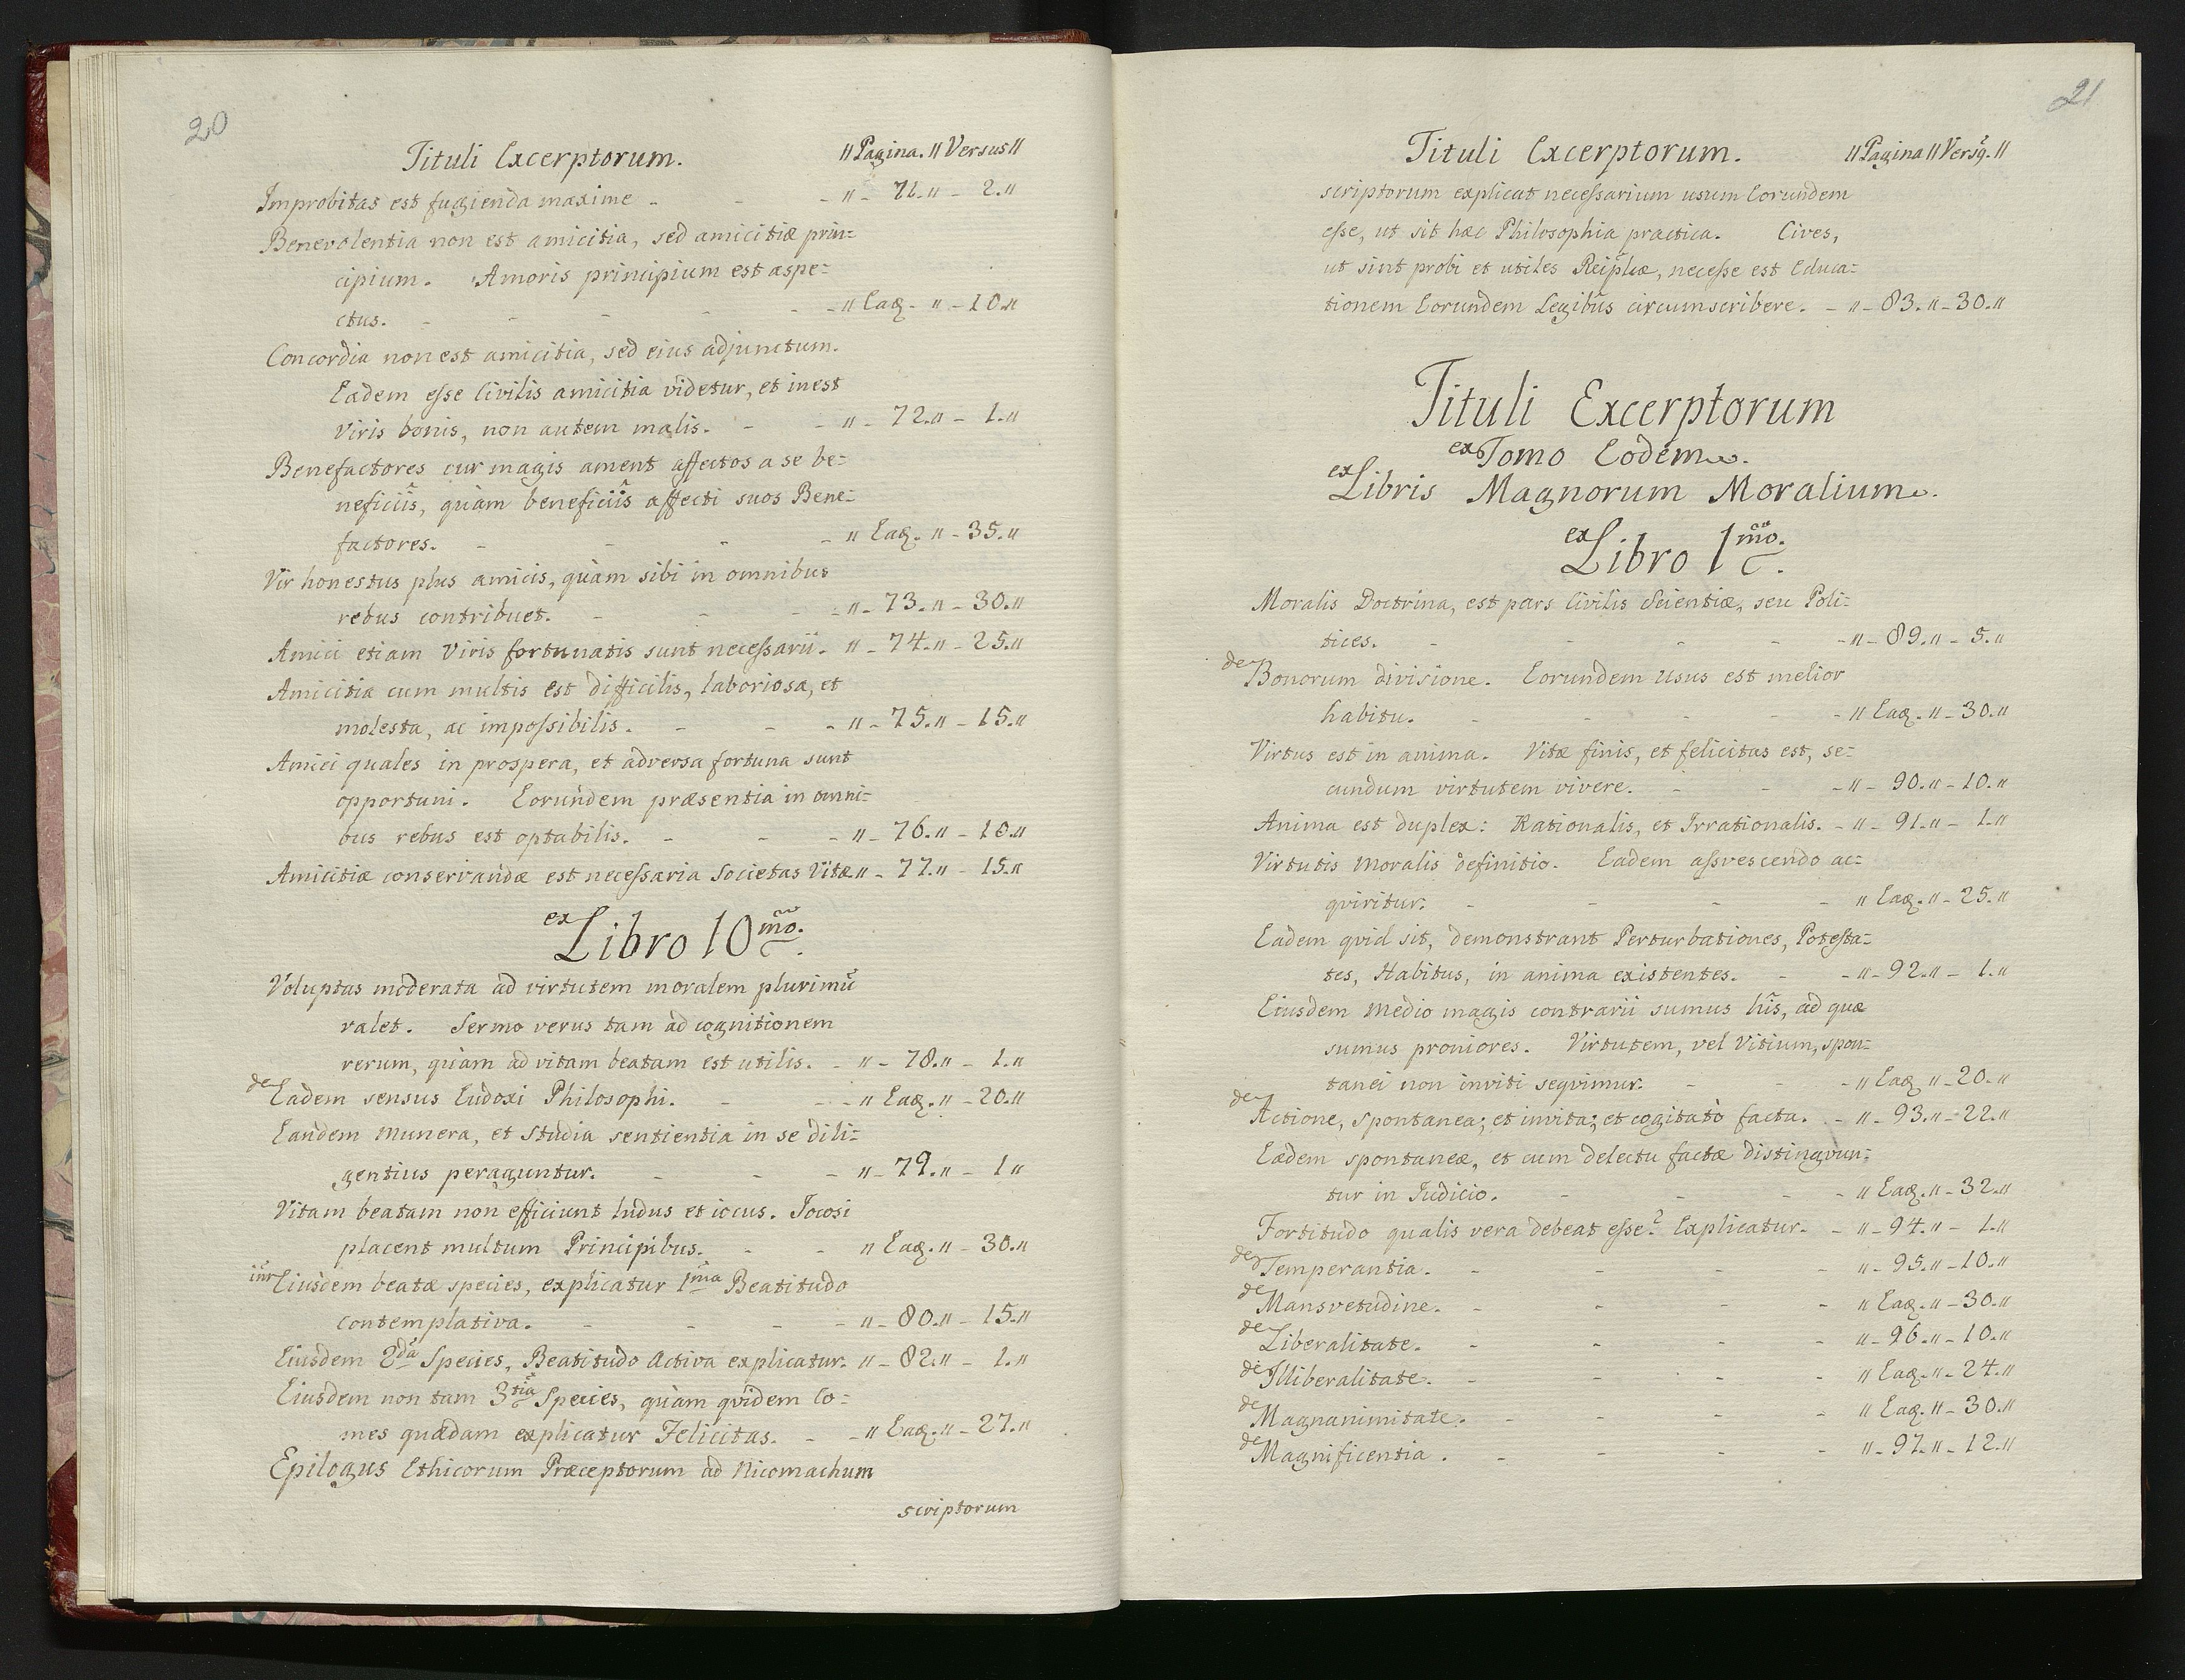 20
Tituli Excerptorum. "Pagina." Versus"
Improbitas est fugienda maxime - - - " - 71." - 2."
Benevolentia non est amicitia, sed amicitiæ prin=
cipium. Amoris principium est aspe=
ctus. - - - - - " Eaq. " - 10."
Concordia non est amicitia, sed eius adjunctum.
Eadem esse Civilis amicitia videtur, et inest
Viris bonis, non autem malis. - - " - 72." - 1."
Benefactores cur magis ament affectos a se be=
neficiis, quàm beneficiis affecti suos Bene=
factores. - - - - " Eaq. " - 35."
Vir honestus plus amicis, quàm sibi in omnibus
rebus contribuet. - - - - " - 73." - 30."
Amici etiam Viris fortunatis sunt necessarii. " - 74." - 25."
Amicitia cum multis est difficilis, laboriosa, et
molesta, ac impossibilis. - - - " - 75." - 15."
Amici quales in prospera, et adversa fortuna sunt
opportuni. Eorundem præsentia in omni=
bus rebus est optabilis. - - - " - 76." - 10."
Amicitiæ conservandæ est necessaria Societas Vitæ " - 77." - 15."
ex Libro 10mo.
Voluptas moderata ad virtutem moralem plurimū
valet. Sermo verus tam ad cognitionem
rerum, quàm ad vitam beatam est utilis. - " - 78." - 1."
de Eadem sensus Eudoxi Philosophi. - - - " Eaq. " - 20."
Eandem Munera, et Studia sentientia in se dili=
gentius peraguntur. - - - " - 79." - 1"
Vitam beatam non efficiunt ludus et iocus. Jocosi
placent multum Principibus. - - " Eaq. " - 30."
Eiusdem beatæ species, explicatur 1ma Beatitudo
contemplativa. - - - - " - 80." - 15."
Eiusdem 2da Species, Beatitudo Activa explicatur. " - 82." - 1."
Eiusdem non tam 3tia Species, quàm qvidem Co=
mes quædam explicatur Felicitas. - - " Eaq. " - 27."
Epilogus Ethicorum Præceptorum ad Nicomachum
scriptorum
21
Tituli Excerptorum. "Pagina"Versq."
scriptorum explicat necessarium usum Eorundem
esse, ut sit hæc Philosophia practica. Cives,
ut sint probi et utiles Reiplæ, necesse est Educa=
tionem Eorundem Legibus circumscribere. - " - 83." - 30."
Tituli Excerptorum
ex Tomo Eodem.
ex Libris Magnorum Moralium.
ex Libro 1mo.
Moralis Doctrina, est pars Civilis Scientiæ, seu Poli=
tices. - - - - - " - 89." - 5."
de Bonorum divisione. Eorundem Usus est melior
habitu. - - - - - " Eaq. " - 30."
Virtus est in anima. Vitæ finis, et felicitas est, se=
cundum virtutem vivere. - - - " - 90." - 10."
Anima est duplex: Rationalis, et Irrationalis. - " - 91." - 1."
Virtutis Moralis definitio. Eadem assvescendo ac=
qviritur. - - - - " Eaq. " - 25."
Eadem qvid sit, demonstrant Perturbationes, Potesta=
tes, Habitus, in anima existentes. - - " - 92." - 1."
Eiusdem Medio magis contrarii sumus his, ad quæ
sumus proniores. Virtutem, vel Vitium, spon=
tanei non inviti seqvimur. - - - " Eaq " - 20."
de Actione, spontanea; et invita; et cogitatò facta. - " - 93." - 22."
Eædem spontaneæ, et cum delectu factæ distingvun=
tur in Iudicio. - - - - " Eaq. " - 32."
Fortitudo qualis vera debeat esse? Explicatur. - " - 94." - 1."
de Temperantia. - - - - " - 95." - 10."
de Mansvetudine. - - - - " Eaq. " - 30."
de Liberalitate. - - - - " - 96." - 10."
de Illiberalitate. - - - - " Eaq. " - 24."
de Magnanimitate. - - - - " Eaq. " - 30."
de Magnificentia. - - - - " - 97." - 12."